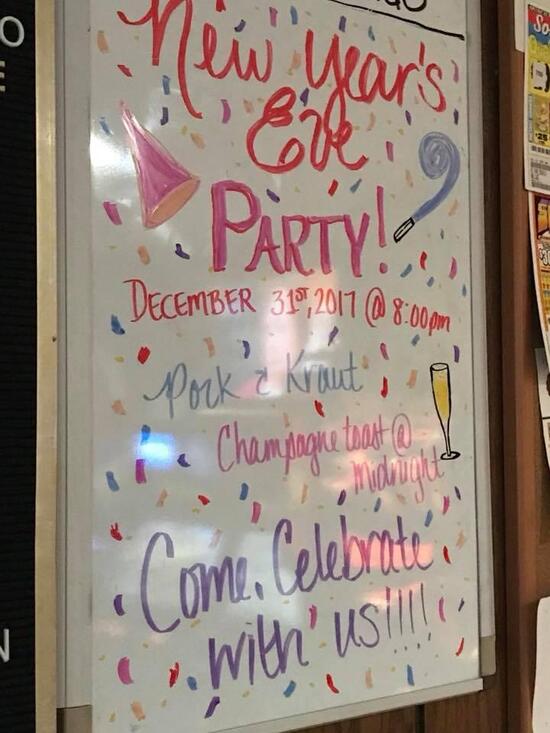 New Year's
Eve
PARTY!
DECEMBER 31ST, 2017 @ 8:00pm
Pork & Kraut
Champagne toast @
midnight
Come, Celebrate
with us!!!!